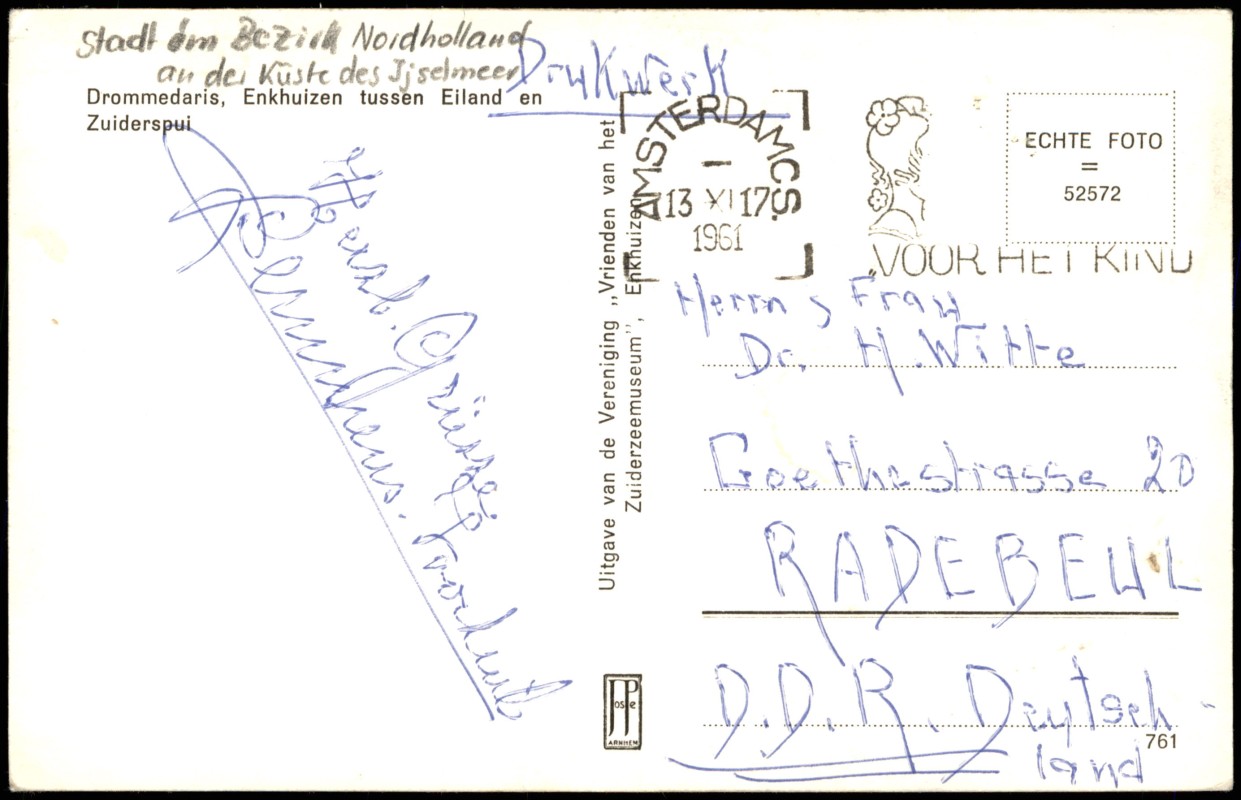 Stadt im Bezirk Nordholland
an der Küste des Ijselmeer
Drukwerk
Drommedaris, Enkhuizen tussen Eiland en
Zuiderspui
Herzl. Grüsse
Uitgave van de Vereniging „Vrienden van het
Zuiderzeemuseum", Enkhuizen
AMSTERDAM C.S.
13 XI 17
1961
„VOOR HET KIND
ECHTE FOTO
=
52572
Herrn & Frau
Dr. H. Witte
Goethestrasse 20
RADEBEUL
D.D.R. Deutsch-
land
761
JP
ARNHEM